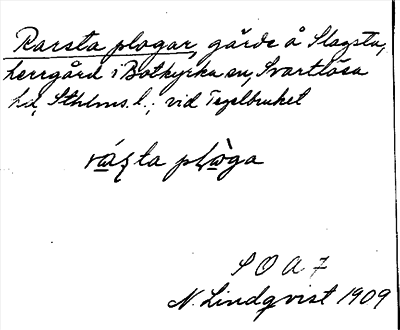 Rarsta plogar, gärde å Slagsta,
herrgård i Botkyrka sn, Svartlösa
hd, Sthlms. l.; vid Tegelbruket
rásta plɷ̀ga
S O A 7
N. Lindqvist 1909